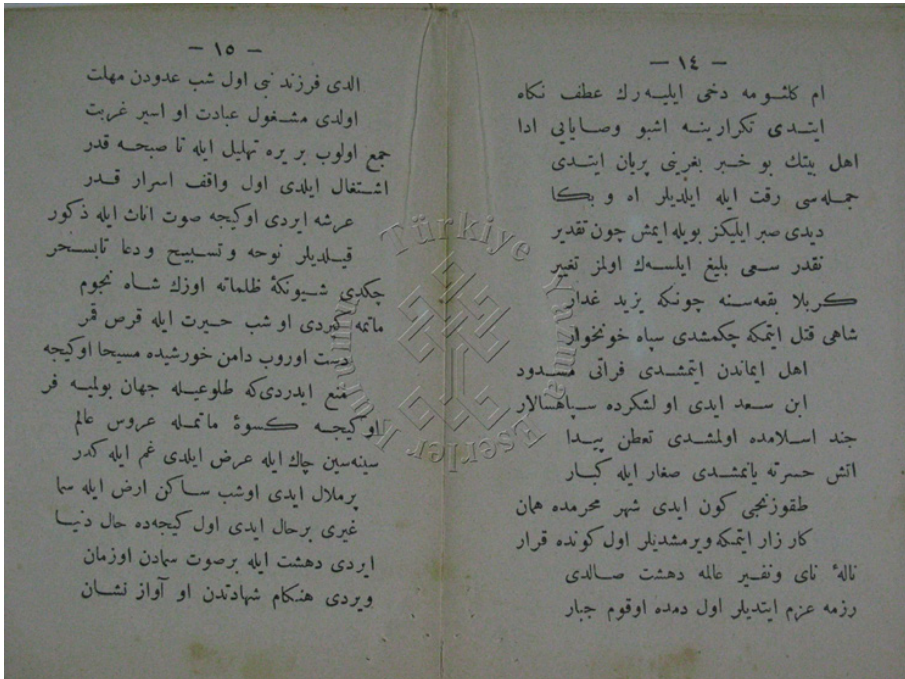 — ١٤ —
ام كلثومه دخی ایلیه‌رك عطف نكاه
ایتدی تكرارینه اشبو وصایایی ادا
اهل بیتك بو خبر بغرینی بریان ایتدی
جمله‌سی رقت ایله ایلدیلر اه و بكا
دیدی صبر ایلیكز بویله ایمش چون تقدیر
نقدر سعی بلیغ ایلسه‌ك اولمز تغییر
كربلا بقعه‌سنه چونكه یزید غدار
شاهی قتل ایتمكه چكمشدی سپاه خونخوار
اهل ایماندن ایتمشدی فراتی مسدود
ابن سعد ایدی او لشكرده سپاهسالار
جند اسلامده اولمشدی تعطن پیدا
اتش حسرته یانمشدی صغار ایله كبار
طقوزنجی كون ایدی شهر محرمده همان
كار زار ایتمكه ویرمشدیلر اول كونده قرار
نالهٔ نای ونفیر عالمه دهشت صالدی
رزمه عزم ایتدیلر اول دمده اوقوم جبار
— ١٥ —
الدی فرزند نبی اول شب عدودن مهلت
اولدی مشغول عبادت او اسیر غربت
جمع اولوب بر یره تهلیل ایله تا صبحه قدر
اشتغال ایلدی اول واقف اسرار قدر
عرشه ایردی اوكیجه صوت اناث ایله ذكور
قیلدیلر نوحه و تسبیح و دعا تابسحر
چكدی شیونكهٔ ظلماته اوزك شاه نجوم
ماتمه كیردی او شب حیرت ایله قرص قمر
دست اوروب دامن خورشیده مسیحا اوكیجه
منع ایدردی كه طلوعیله جهان بولمیه فر
اوكیجه كسوهٔ ماتمله عروس عالم
سینه‌سین چاك ایله عرض ایلدی غم ایله كدر
پرملال ایدی اوشب ساكن ارض ایله سما
غیری برحال ایدی اول كیجه‌ده حال دنیا
ایردی دهشت ایله برصوت سمادن اوزمان
ویردی هنكام شهادتدن او آواز نشان
Türkiye Yazma Eserler Kurumu